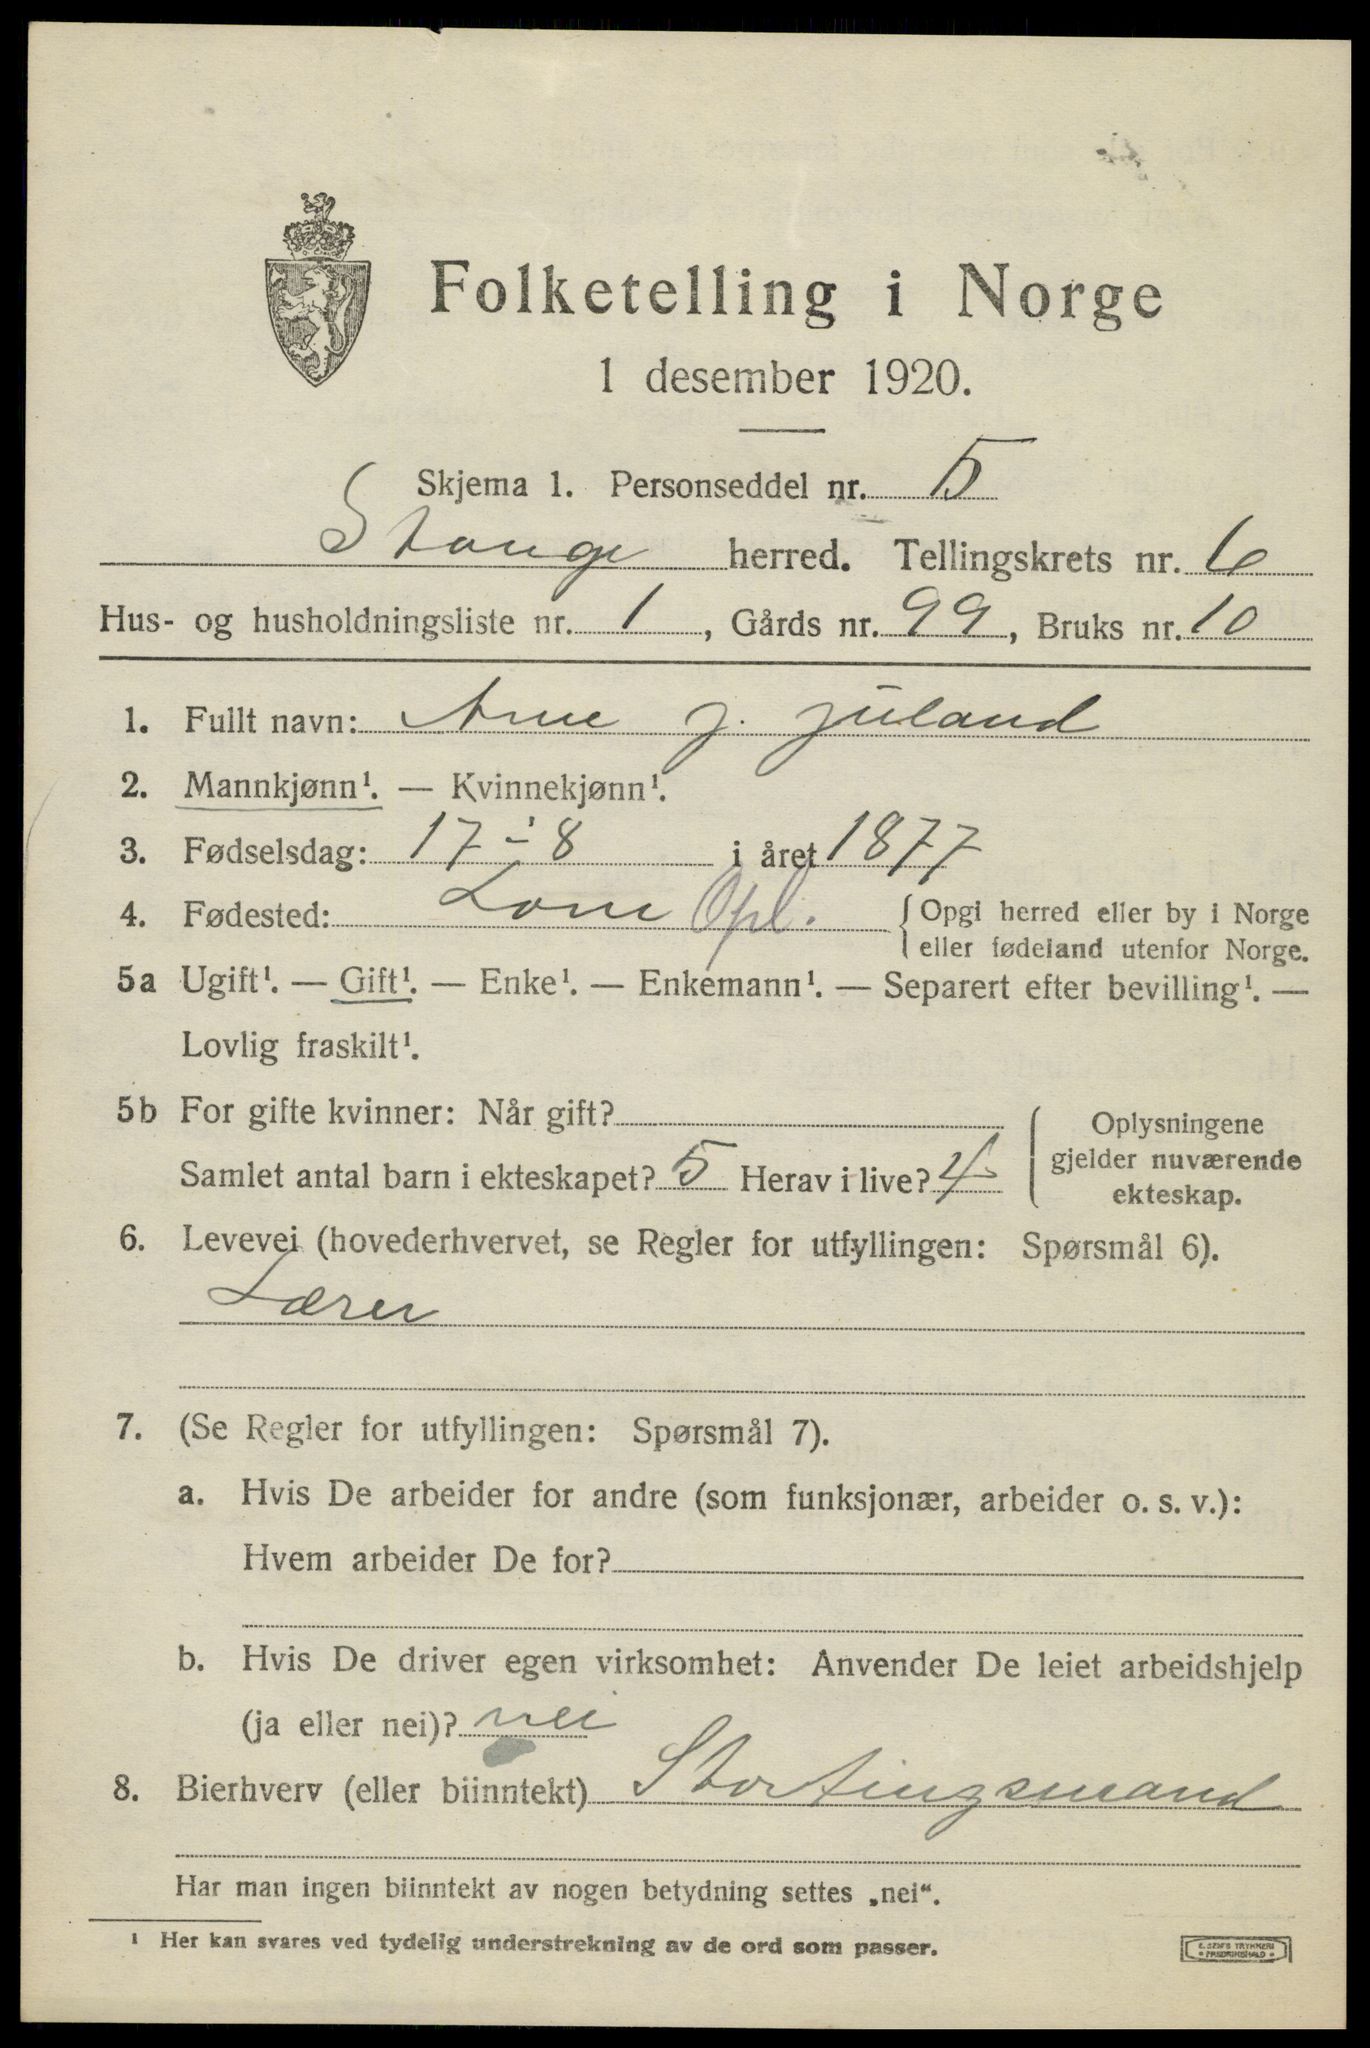 Folketelling i Norge
1 desember 1920.
Skjema 1. Personseddel nr. 5
Stange herred. Tellingskrets nr. 6
Hus- og husholdningsliste nr. 1, Gårds nr. 99, Bruks nr. 10
1. Fullt navn: Arne J. Juland
2. Mannkjønn¹. — Kvinnekjønn¹.
3. Fødselsdag: 17 ÷ 8 i året 1877
4. Fødested: Lom Opl. { Opgi herred eller by i Norge
eller fødeland utenfor Norge.
5a Ugift¹. — Gift¹. — Enke¹. — Enkemann¹. — Separert efter bevilling¹. —
Lovlig fraskilt¹.
5b For gifte kvinner: Når gift?
Samlet antal barn i ekteskapet? 5 Herav i live? 4
Oplysningene
gjelder nuværende
ekteskap.
6. Levevei (hovederhvervet, se Regler for utfyllingen: Spørsmål 6).
Lærer
7. (Se Regler for utfyllingen: Spørsmål 7).
a. Hvis De arbeider for andre (som funksjonær, arbeider o. s. v.):
Hvem arbeider De for?
b. Hvis De driver egen virksomhet: Anvender De leiet arbeidshjelp
(ja eller nei)? nei
8. Bierhverv (eller biinntekt) Stortingsmand
Har man ingen biinntekt av nogen betydning settes „nei“.
¹ Her kan svares ved tydelig understrekning av de ord som passer.
E. SEM'S TRYKKERI
* FREDRIKSHALD *